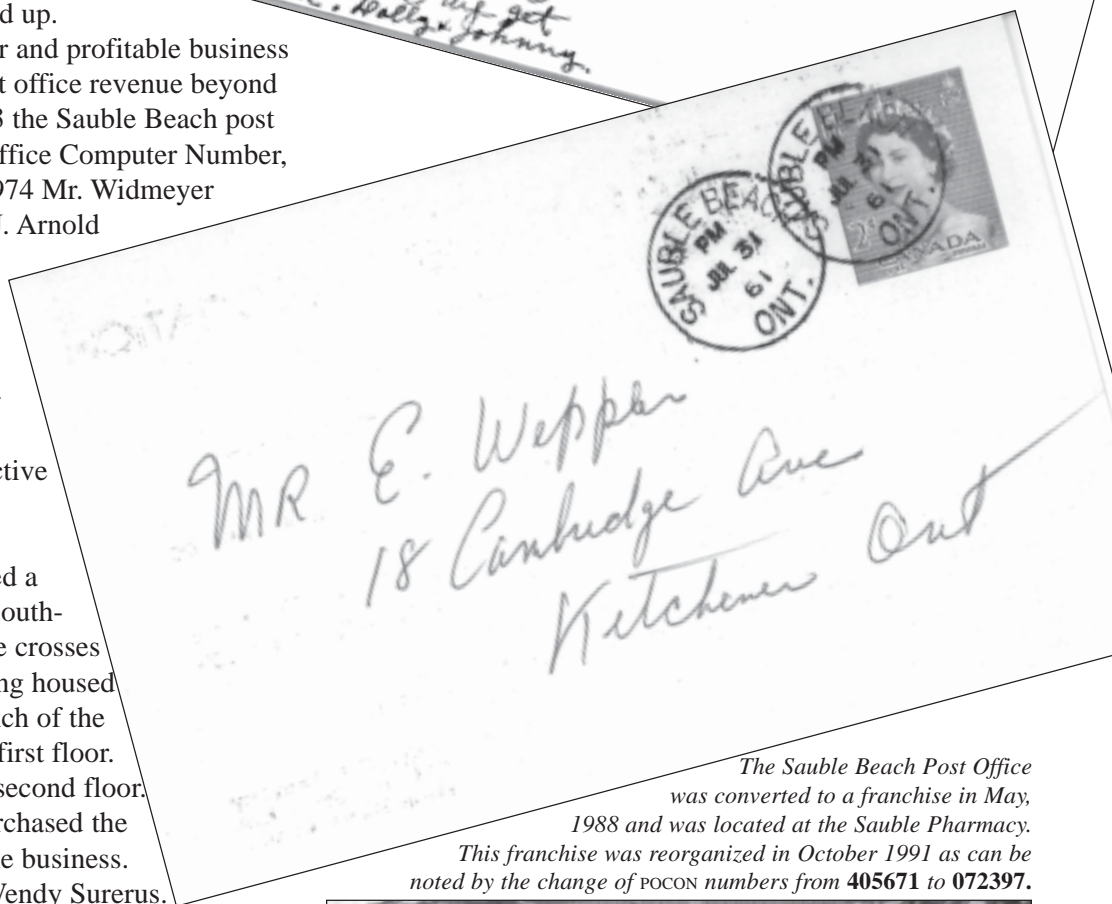 d up.
r and profitable business
t office revenue beyond
3 the Sauble Beach post
ffice Computer Number,
974 Mr. Widmeyer
J. Arnold
ctive
ed a
outh-
e crosses
ng housed
ch of the
first floor.
second floor.
rchased the
e business.
Wendy Surerus.
get
Dolly & Johnny.
SAUBLE BEACH
PM
JUL 31
61
ONT.
SAUBLE BEACH
PM
JUL 31
61
ONT.
2¢
CANADA
MR E. Weppler
18 Cambridge Ave
Kitchener Ont
The Sauble Beach Post Office
was converted to a franchise in May,
1988 and was located at the Sauble Pharmacy.
This franchise was reorganized in October 1991 as can be
noted by the change of POCON numbers from 405671 to 072397.